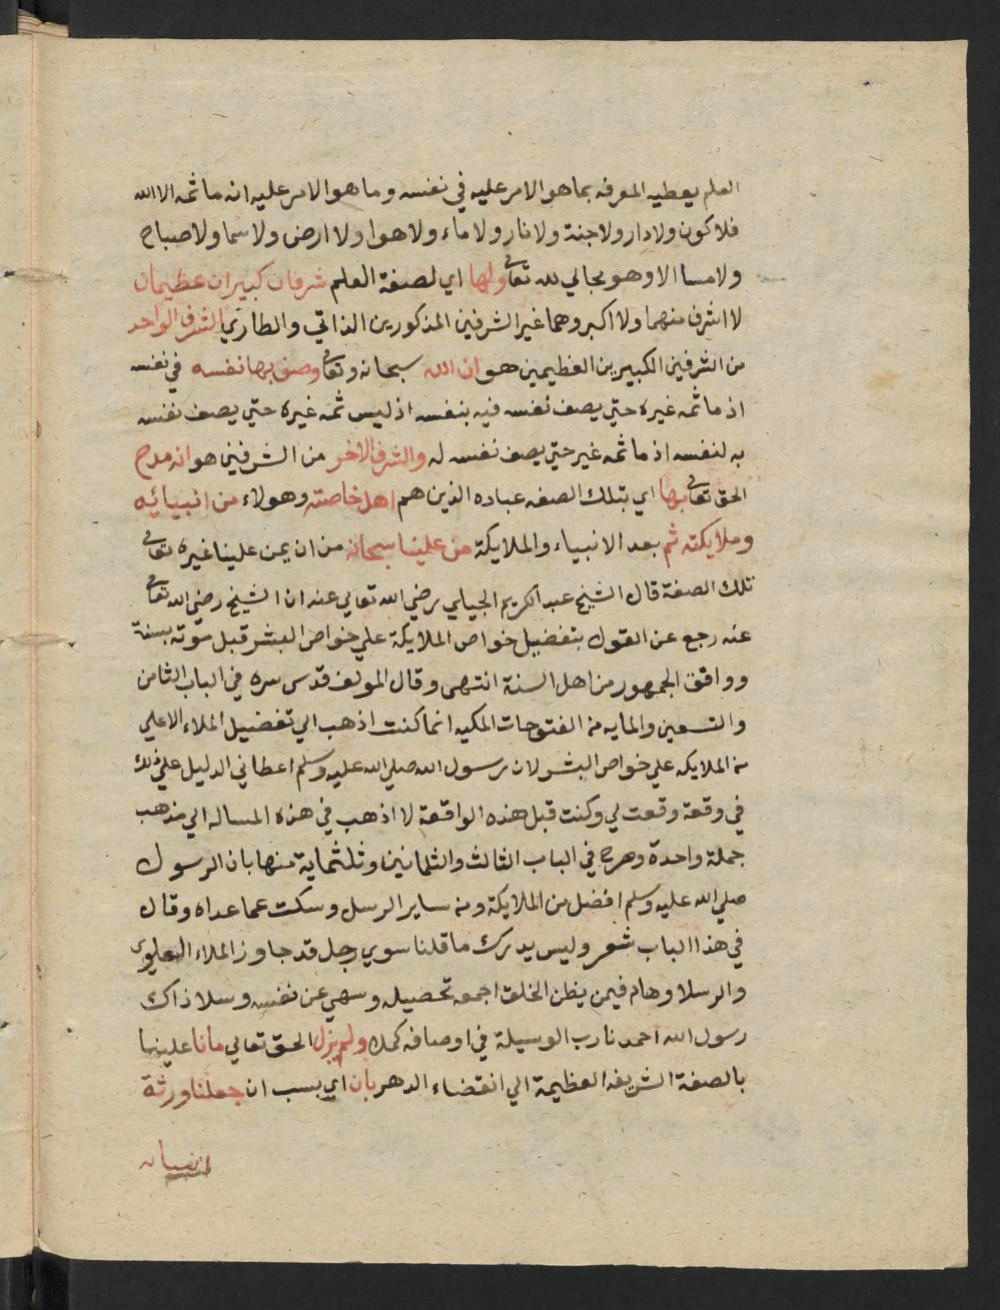 العلم يعطيه المعرفه بما هو الامر عليه في نفسه وما هو الامر عليه انه ما ثمه الا الله
فلا كون ولا دار ولا جنة ولا نار ولا ماء ولا هوا ولا ارض ولا سما ولا صباح
ولا مسا الا وهو مجالي لله تعالى ولها اي لصفة العلم شرفان كبيران عظيمان
لا اشرف منهما ولا اكبر وهما غير الشرفين المذكورين الذاتي والطاري الشرف الواحد
من الشرفين الكبيرين العظيمين هو ان الله سبحانه وتعالى وصف بها نفسه في نفسه
اذ ما ثمه غيره حتي يصف نفسه فيه بنفسه اذ ليس ثمه غيره حتي يصف نفسه
به لنفسه اذ ما ثمه غير حتي يصف نفسه له والشرف الاخر من الشرفين هو انه مدح
الحق تعالى بها اي بتلك الصفه عباده الذين هم اهل خاصته وهولاء من انبيائه
وملايكته ثم بعد الانبياء والملايكة من علينا سبحانه من ان يمن علينا غيره تعالى
تلك الصفة قال الشيخ عبد الكريم الجيلي رضي الله تعالي عنه ان الشيخ رضي الله تعالى
عنه رجع عن القول بتفضيل خواص الملايكة علي خواص البشر قبل موته بسنة
ووافق الجمهور من اهل السنة انتهى وقال المولف قدس سره في الباب الثامن
والتسعين والمايه من الفتوحات المكيه انما كنت اذهب الي تفضيل الملاء الاعلى
من الملايكه علي خواص البشر لان رسول الله صلي الله عليه وسلم اعطاني الدليل علي ذلك
في وقعة وقعت لي وكنت قبل هذه الواقعة لا اذهب في هذه المساله الي مذهب
جملة واحدة وصرح في الباب الثالث والثمانين وثلثماية منها بان الرسول
صلي الله عليه وسلم افضل من الملايكة ومن ساير الرسل وسكت عما عداه وقال
في هذا الباب شعر وليس يدرك ما قلنا سوي رجل قد جاوز الملاء العلوى
والرسلا وهام فيمن يظن الخلق اجمعه تحصيله وسهي عن نفسه وسلا ذاك
رسول الله احمدنا رب الوسيلة في اوصافه كملا ولم يزل الحق تعالي مانا علينا
بالصفة الشريفه العظيمة الي انقضاء الدهر بان اي بسبب ان جعلنا ورثة
انبيائه